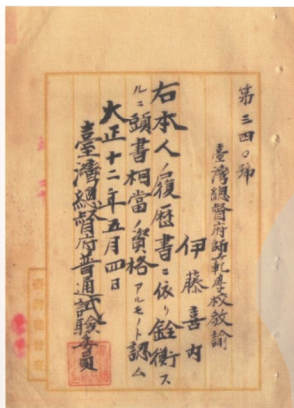 第三四〇號
臺灣總督府師範學校教諭
伊藤喜内
右本人ノ履歴書ニ依リ銓衡ス
ルニ頭書相當ノ資格アルモノト認ム
大正十二年五月四日
臺灣總督府普通試驗委員